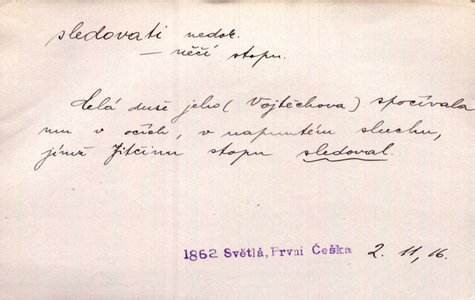 sledovati nedok.
— něčí stopu.
Celá duše jeho (Vojtěchova) spočívala
mu v očích, v napnutém sluchu,
jímž Jitčinu stopu sledoval.
1862 Světlá, První Češka 2. 11, 16.